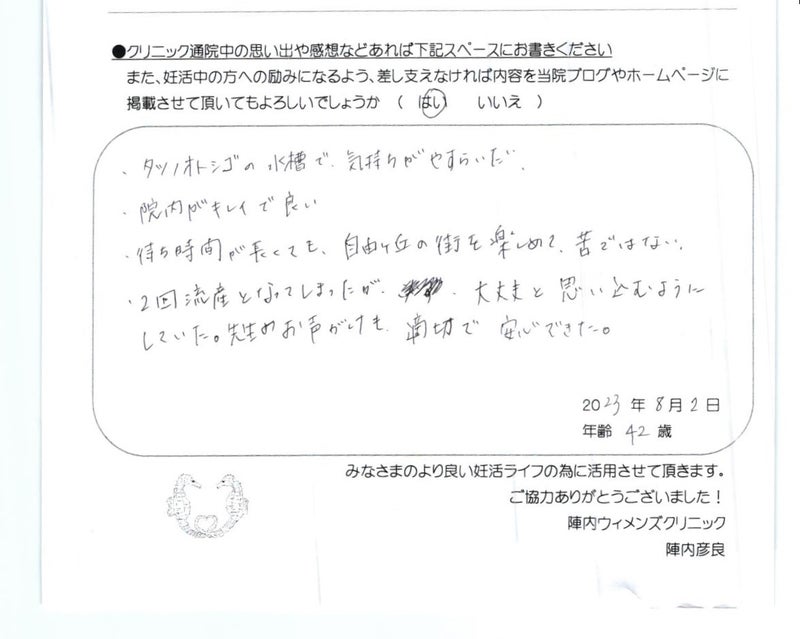 ●クリニック通院中の思い出や感想などあれば下記スペースにお書きください
また、妊活中の方への励みになるよう、差し支えなければ内容を当院ブログやホームページに
掲載させて頂いてもよろしいでしょうか （ はい いいえ ）
・タツノオトシゴの水槽で、気持ちがやすらいだ。
・院内がキレイで良い
・待ち時間が長くても、自由ヶ丘の街を楽しめて、苦ではない。
・2回流産となってしまったが、大丈夫と思い込むように
していた。先生のお声がけも、適切で安心できた。
2023年8月2日
年齢 42歳
みなさまのより良い妊活ライフの為に活用させて頂きます。
ご協力ありがとうございました！
陣内ウィメンズクリニック
陣内彦良